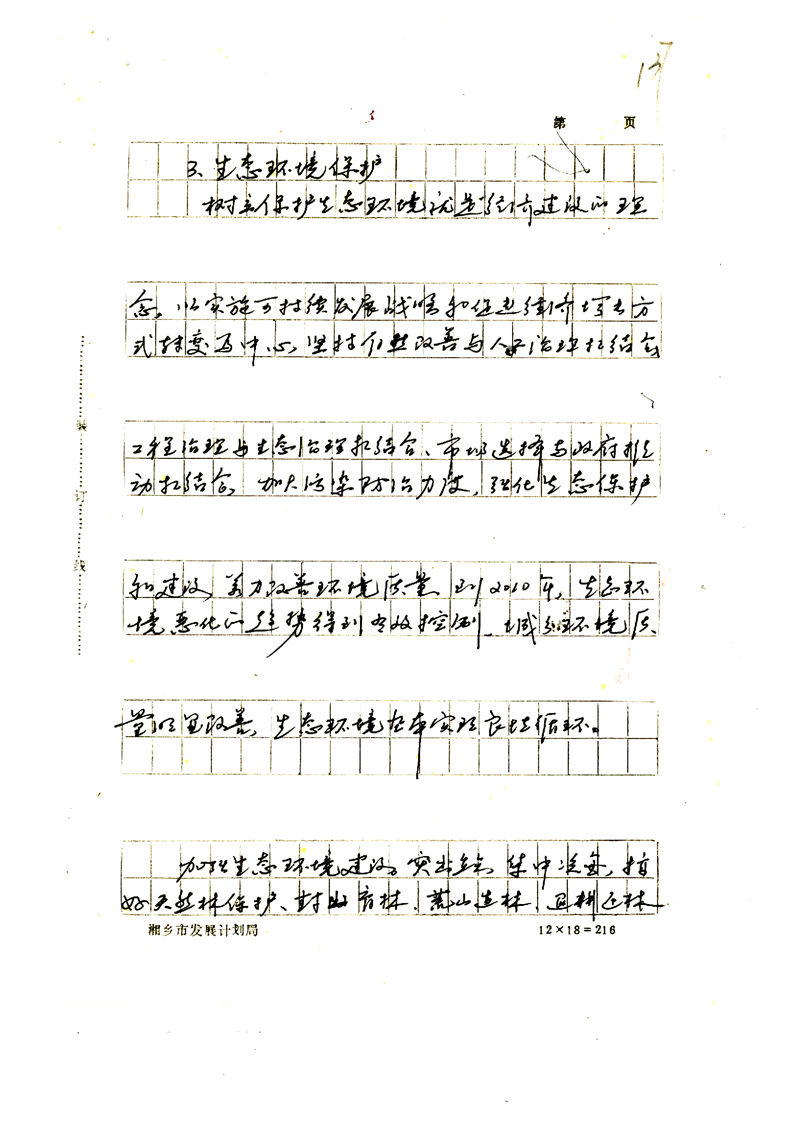 137
第 页
3、生态环境保护
树立保护生态环境就是经济建设的理
念。以实施可持续发展战略和促进经济增长方
式转变为中心，坚持自然改善与人工治理相结合、
工程治理与生态治理相结合、市场选择与政府推
动相结合，加大污染防治力度，强化生态保护
和建设，着力改善环境质量，到2010年，生态环
境恶化的趋势得到有效控制，城乡环境质
量明显改善，生态环境基本实现良性循环。
加强生态环境建设。突出重点，集中设金，搞
好天然林保护、封山育林、荒山造林、退耕还林
湘乡市发展计划局
12×18=216
装
订
线